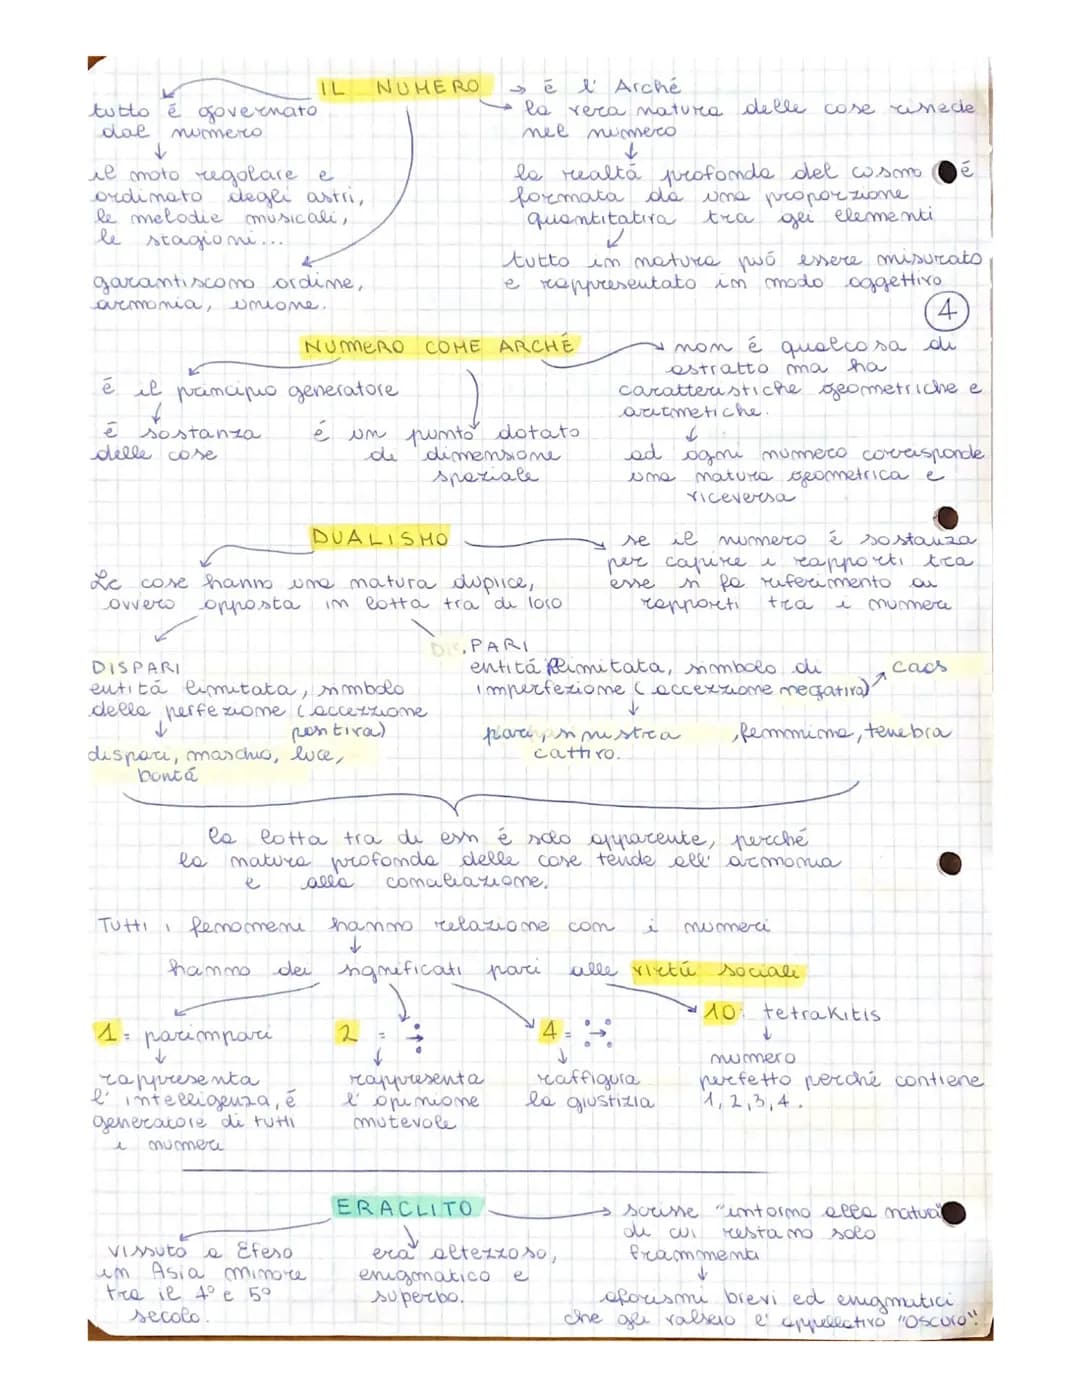 IL NUMERO → é l' Arché
tutto é governato
dal numero
↓
il moto regolare e
ordinato degli astri,
le melodie musicali,
le stagioni...
garantiscono ordine,
armonia, unione.
la vera natura delle cose risiede
nel numero
↓
la realtá profonda del cosmo é
formata da una proporzione
quantitativa tra gli elementi
↓
tutto in natura puó essere misurato
e rappresentato in modo oggettivo
4
NUMERO COME ARCHÉ
é il principio generatore
↓
é sostanza
delle cose
é un punto dotato
di dimensione
spaziale
non é qualcosa di
astratto ma ha
caratteristiche geometriche e
aritmetiche.
↓
ad ogni numero corrisponde
una natura geometrica e
viceversa
DUALISMO
Le cose hanno una natura duplice,
ovvero opposta in lotta tra di loro
se il numero é sostanza
per capire i rapporti tra
esse si fa riferimento ai
rapporti tra i numeri
DISPARI
entitá limitata, simbolo
della perfezione (accezzione
positiva)
↓
dispari, maschio, luce,
bontá
PARI
entitá illimitata, simbolo di
imperfezione (accezzione negativa)
caos
↓
pari, sinistra, femmina, tenebra
cattivo.
la lotta tra di essi é solo apparente, perché
la natura profonda delle cose tende all' armonia
e alla conciliazione.
Tutti i fenomeni hanno relazione con i numeri
↓
hanno dei significati pari alle virtú sociali
1 = parimpari
↓
rappresenta
l' intelligenza, é
generatore di tutti
i numeri
2 =
↓
rappresenta
l' opinione
mutevole
4 =
↓
raffigura
la giustizia
10: tetraKitis
↓
numero
perfetto perché contiene
1, 2, 3, 4.
ERACLITO
vissuto a Efeso
in Asia minore
tra il 4° e 5°
secolo.
era altezzoso,
enigmatico e
superbo.
scrisse "intorno alla natura
di cui restano solo
frammenti
↓
aforismi brevi ed enigmatici
che gli valsero l' appellativo "OSCURO".